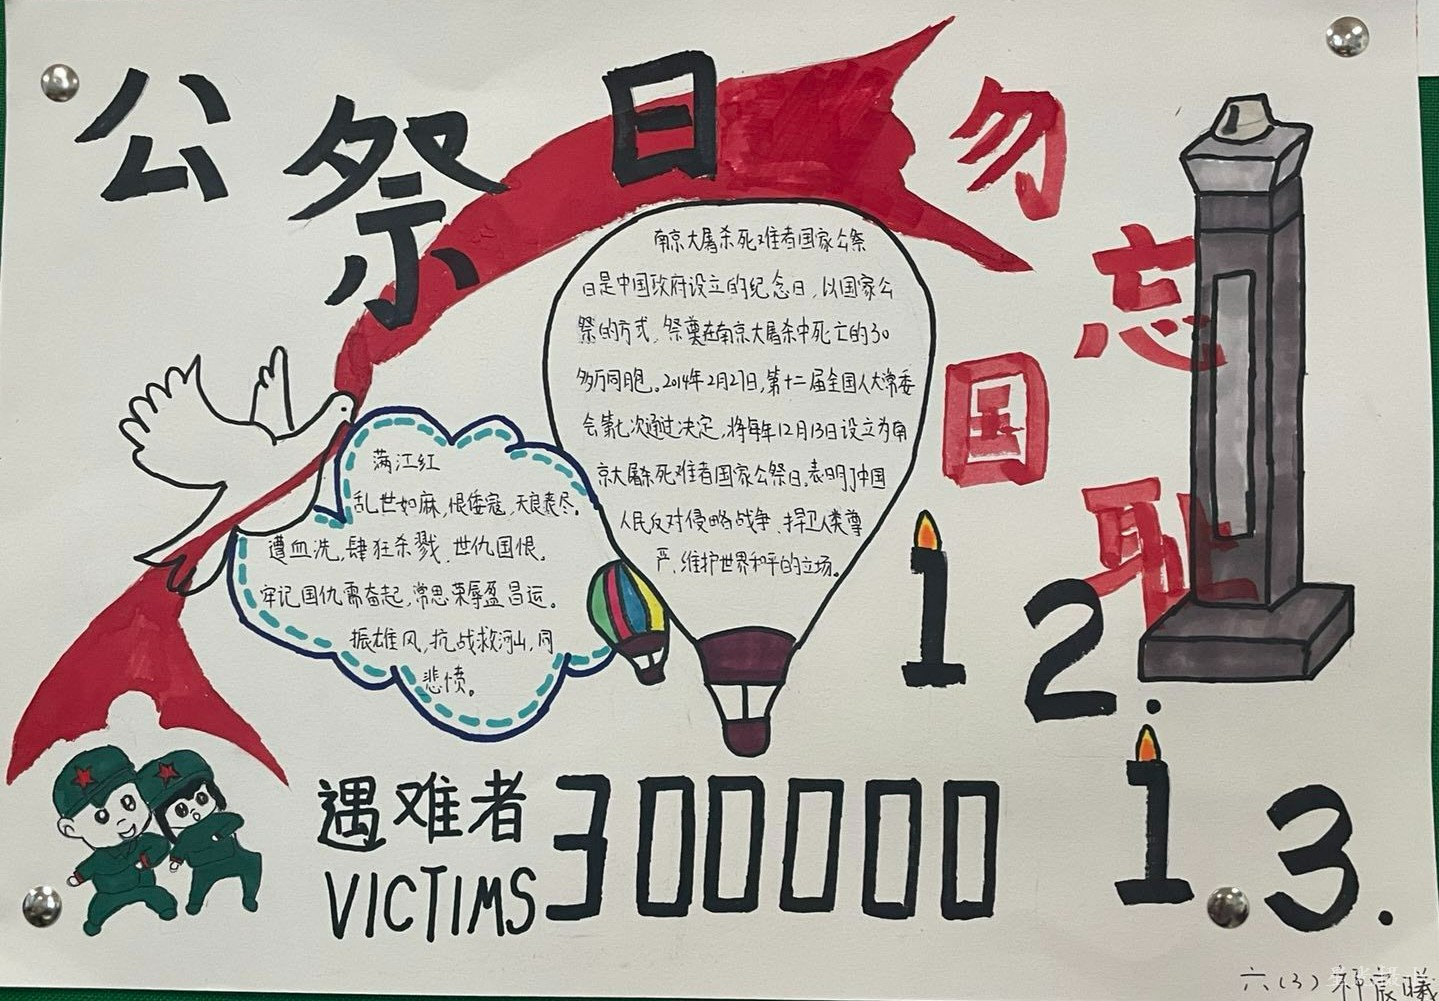 公祭日
勿忘国耻
南京大屠杀死难者国家公祭
日是中国政府设立的纪念日，以国家公
祭的方式，祭奠在南京大屠杀中死亡的30
多万同胞。2014年2月27日，第十二届全国人大常委
会第七次通过决定，将每年12月13日设立为南
京大屠杀死难者国家公祭日，表明了中国
人民反对侵略战争、捍卫人类尊
严、维护世界和平的立场。
满江红
乱世如麻，恨倭寇，天良丧尽。
遭血洗，肆狂杀戮，世仇国恨。
牢记国仇需奋起，常思荣辱盈昌运。
振雄风，抗战救河山，同
悲愤。
12.
13.
遇难者
VICTIMS
300000
六（3）祁宸曦